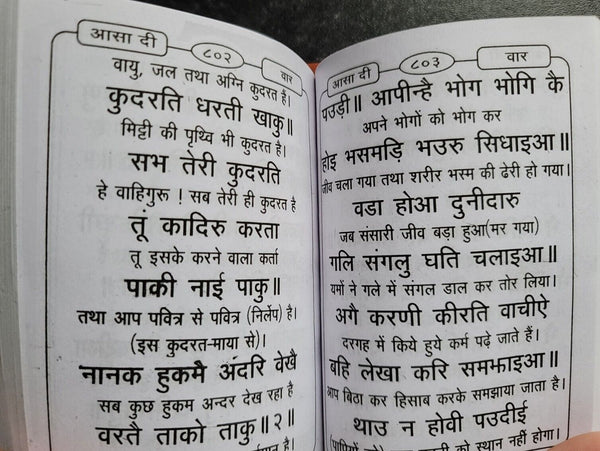 आसा दी
८०२
वार
वायु, जल तथा अग्नि कुदरत है।
कुदरति धरती खाकु॥
मिट्टी की पृथ्वि भी कुदरत है।
सभ तेरी कुदरति
हे वाहिगुरू ! सब तेरी ही कुदरत है
तूं कादिरु करता
तू इसके करने वाला कर्ता
पाकी नाई पाकु॥
तथा आप पवित्र से पवित्र (निर्लेप) है।
(इस कुदरत-माया से)।
नानक हुकमै अंदरि वेखै
सब कुछ हुकम अन्दर देख रहा है
वरतै ताको ताकु॥२॥
आसा दी
८०३
वार
पउड़ी॥ आपीन्है भोग भोगि कै
अपने भोगों को भोग कर
होइ भसमड़ि भउरु सिधाइआ॥
जीव चला गया तथा शरीर भस्म की ढेरी हो गया।
वडा होआ दुनीदारु
जब संसारी जीव बड़ा हुआ(मर गया)
गलि संगलु घति चलाइआ॥
यमों ने गले में संगल डाल कर तोर लिया।
अगै करणी कीरति वाचीऐ
दरगह में किये हुये कर्म पढ़े जाते हैं।
बहि लेखा करि समझाइआ॥
आप बिठा कर हिसाब करके समझाया जाता है।
थाउ न होवी पउदीई
को स्थान नहीं होगा।